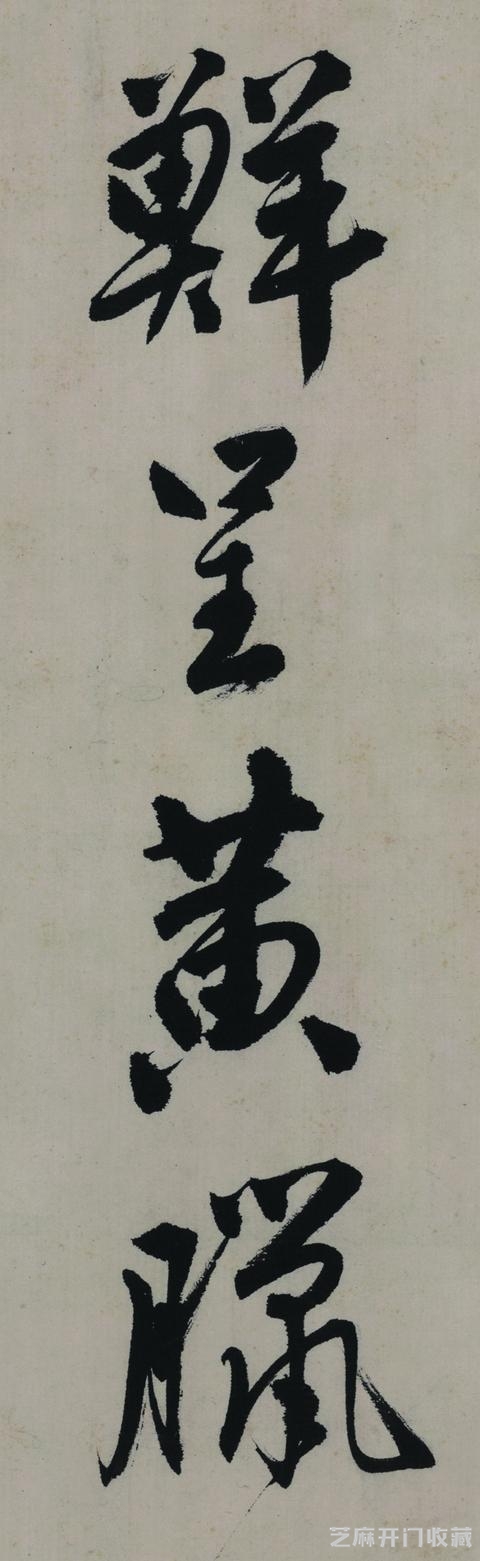 鮮呈黄臘
芝麻开门收藏